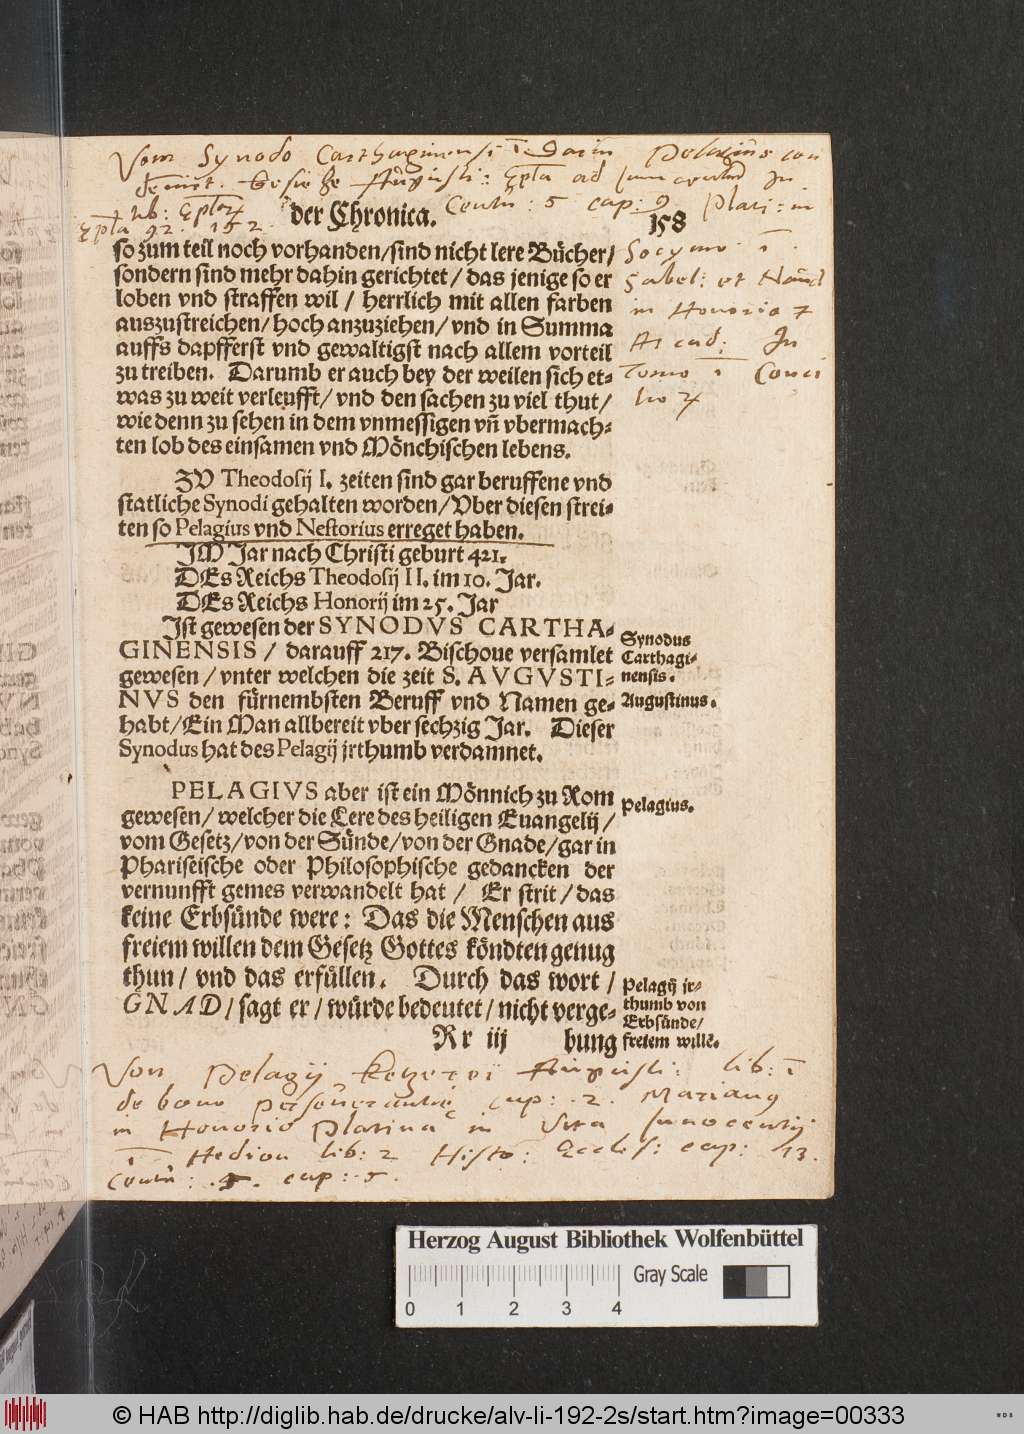 Vom Synodo Carthaginensi
der Chronica. 158
so zum teil noch vorhanden/sind nicht lere Bücher/
sondern sind mehr dahin gerichtet/ das jenige so er
loben vnd straffen wil/ herrlich mit allen farben
auszustreichen/ hoch anzuziehen/ vnd in Summa
auffs dapfferst vnd gewaltigst nach allem vorteil
zu treiben. Darumb er auch bey der weilen sich et-
was zu weit verleufft/ vnd den sachen zu viel thut/
wie denn zu sehen in dem vnmessigen vñ vbermach-
ten lob des einsamen vnd Mönchischen lebens.
ZV Theodosij I. zeiten sind gar beruffene vnd
statliche Synodi gehalten worden/ Vber diesen strei-
ten so Pelagius vnd Nestorius erreget haben.
IM Jar nach Christi geburt 421.
DEs Reichs Theodosij II. im 10. Jar.
DEs Reichs Honorij im 25. Jar
Ist gewesen der SYNODVS CARTHA-
GINENSIS / darauff 217. Bischoue versamlet
gewesen/ vnter welchen die zeit S. AVGVSTI-
NVS den fürnembsten Beruff vnd Namen ge-
habt/ Ein Man allbereit vber sechzig Jar. Dieser
Synodus hat des Pelagij jrthumb verdamnet.
Synodus
Carthagi-
nensis.
Augustinus.
PELAGIVS aber ist ein Mönnich zu Rom
gewesen/ welcher die Lere des heiligen Euangelij/
vom Gesetz/ von der Sünde/ von der Gnade/ gar in
Phariseische oder Philosophische gedancken der
vernunfft gemes verwandelt hat/ Er strit/ das
keine Erbsünde were: Das die Menschen aus
freiem willen dem Gesetz Gottes köndten genug
thun/ vnd das erfüllen. Durch das wort/
GNAD/ sagt er/ würde bedeutet/ nicht verge-
Pelagius.
Pelagij jr-
thumb von
Erbsünde/
freiem willē.
Rr iij bung
Von Pelagij Ketzereÿ Augusti: lib: 1
de bono perseverantie cap: 2. Marianus
in Honorio Platina in Vita Innocentij
1 Hedion lib: 2 Histo: Eccles: cap: 13.
Centu: 5. cap: 5.
Herzog August Bibliothek Wolfenbüttel
Gray Scale
0 1 2 3 4
© HAB http://diglib.hab.de/drucke/alv-li-192-2s/start.htm?image=00333